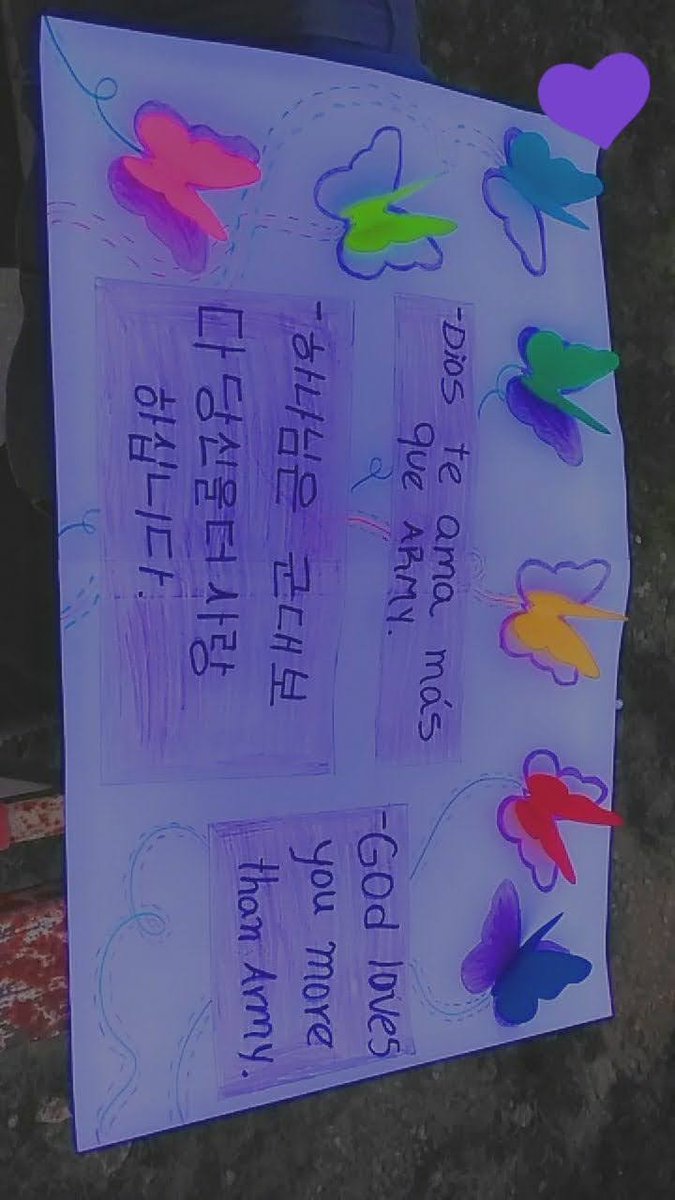 -Dios te ama más
que ARMY.
-하나님은 군대보
다 당신을더 사랑
하십니다.
-God loves
you more
than Army.